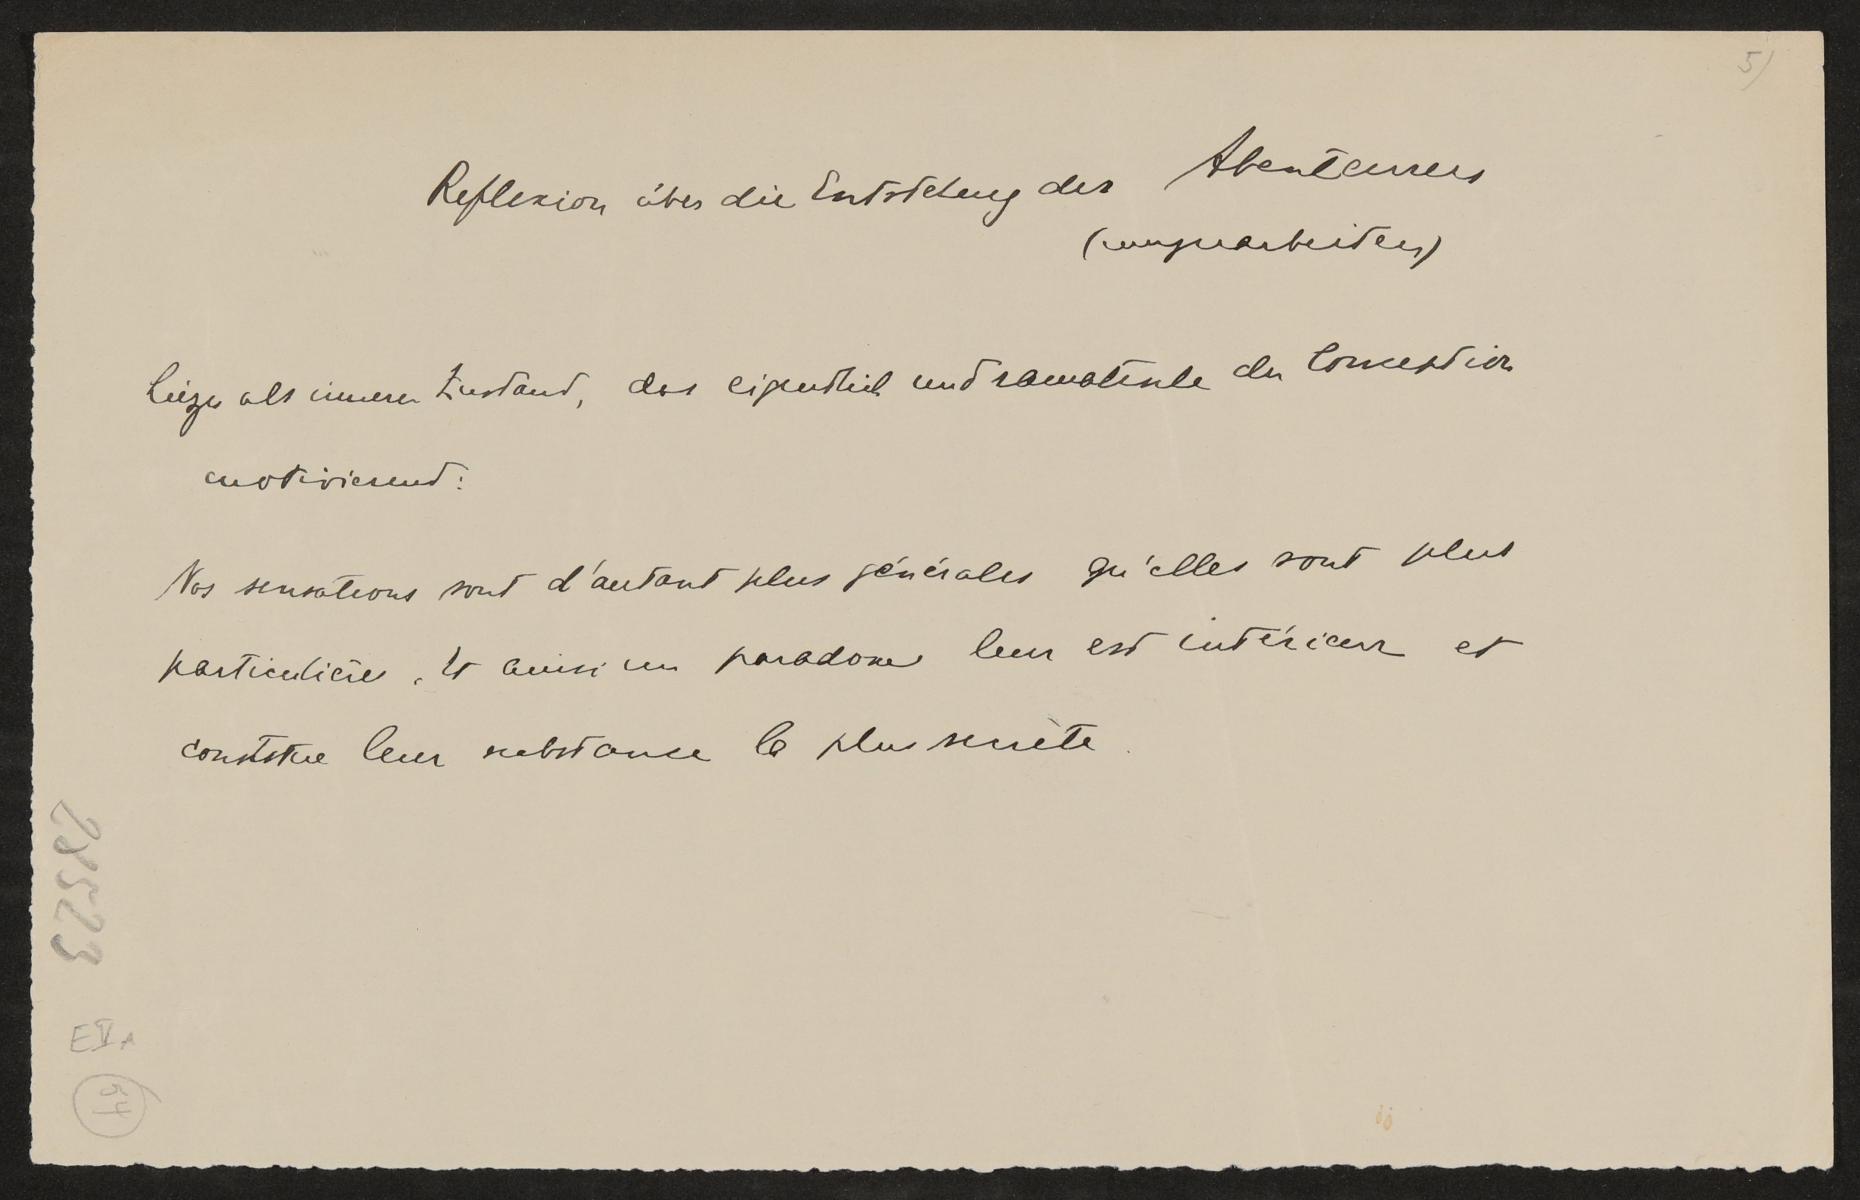 5)
Reflexion über die Entstehung des Abenteurers
(umzuarbeiten)
Lüge als innerer Zustand, das eigentlich undramatische der Conception
motivierend:
Nos sensations sont d'autant plus générales qu'elles sont plus
particulières. Et ainsi un paradoxe leur est intérieur et
constitue leur substance la plus secrète.
28523
EVA
54